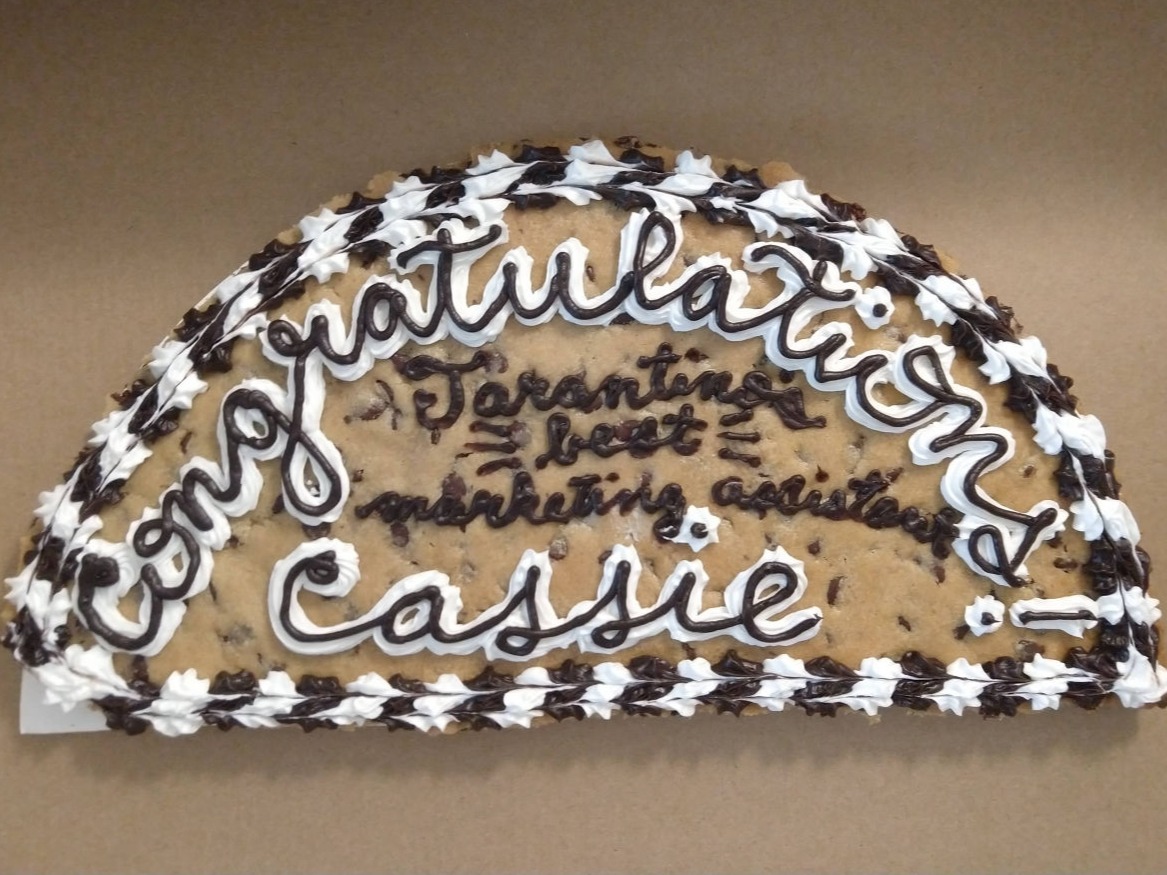 Congratulations!
Tarantinos
best
marketing assistant
Cassie